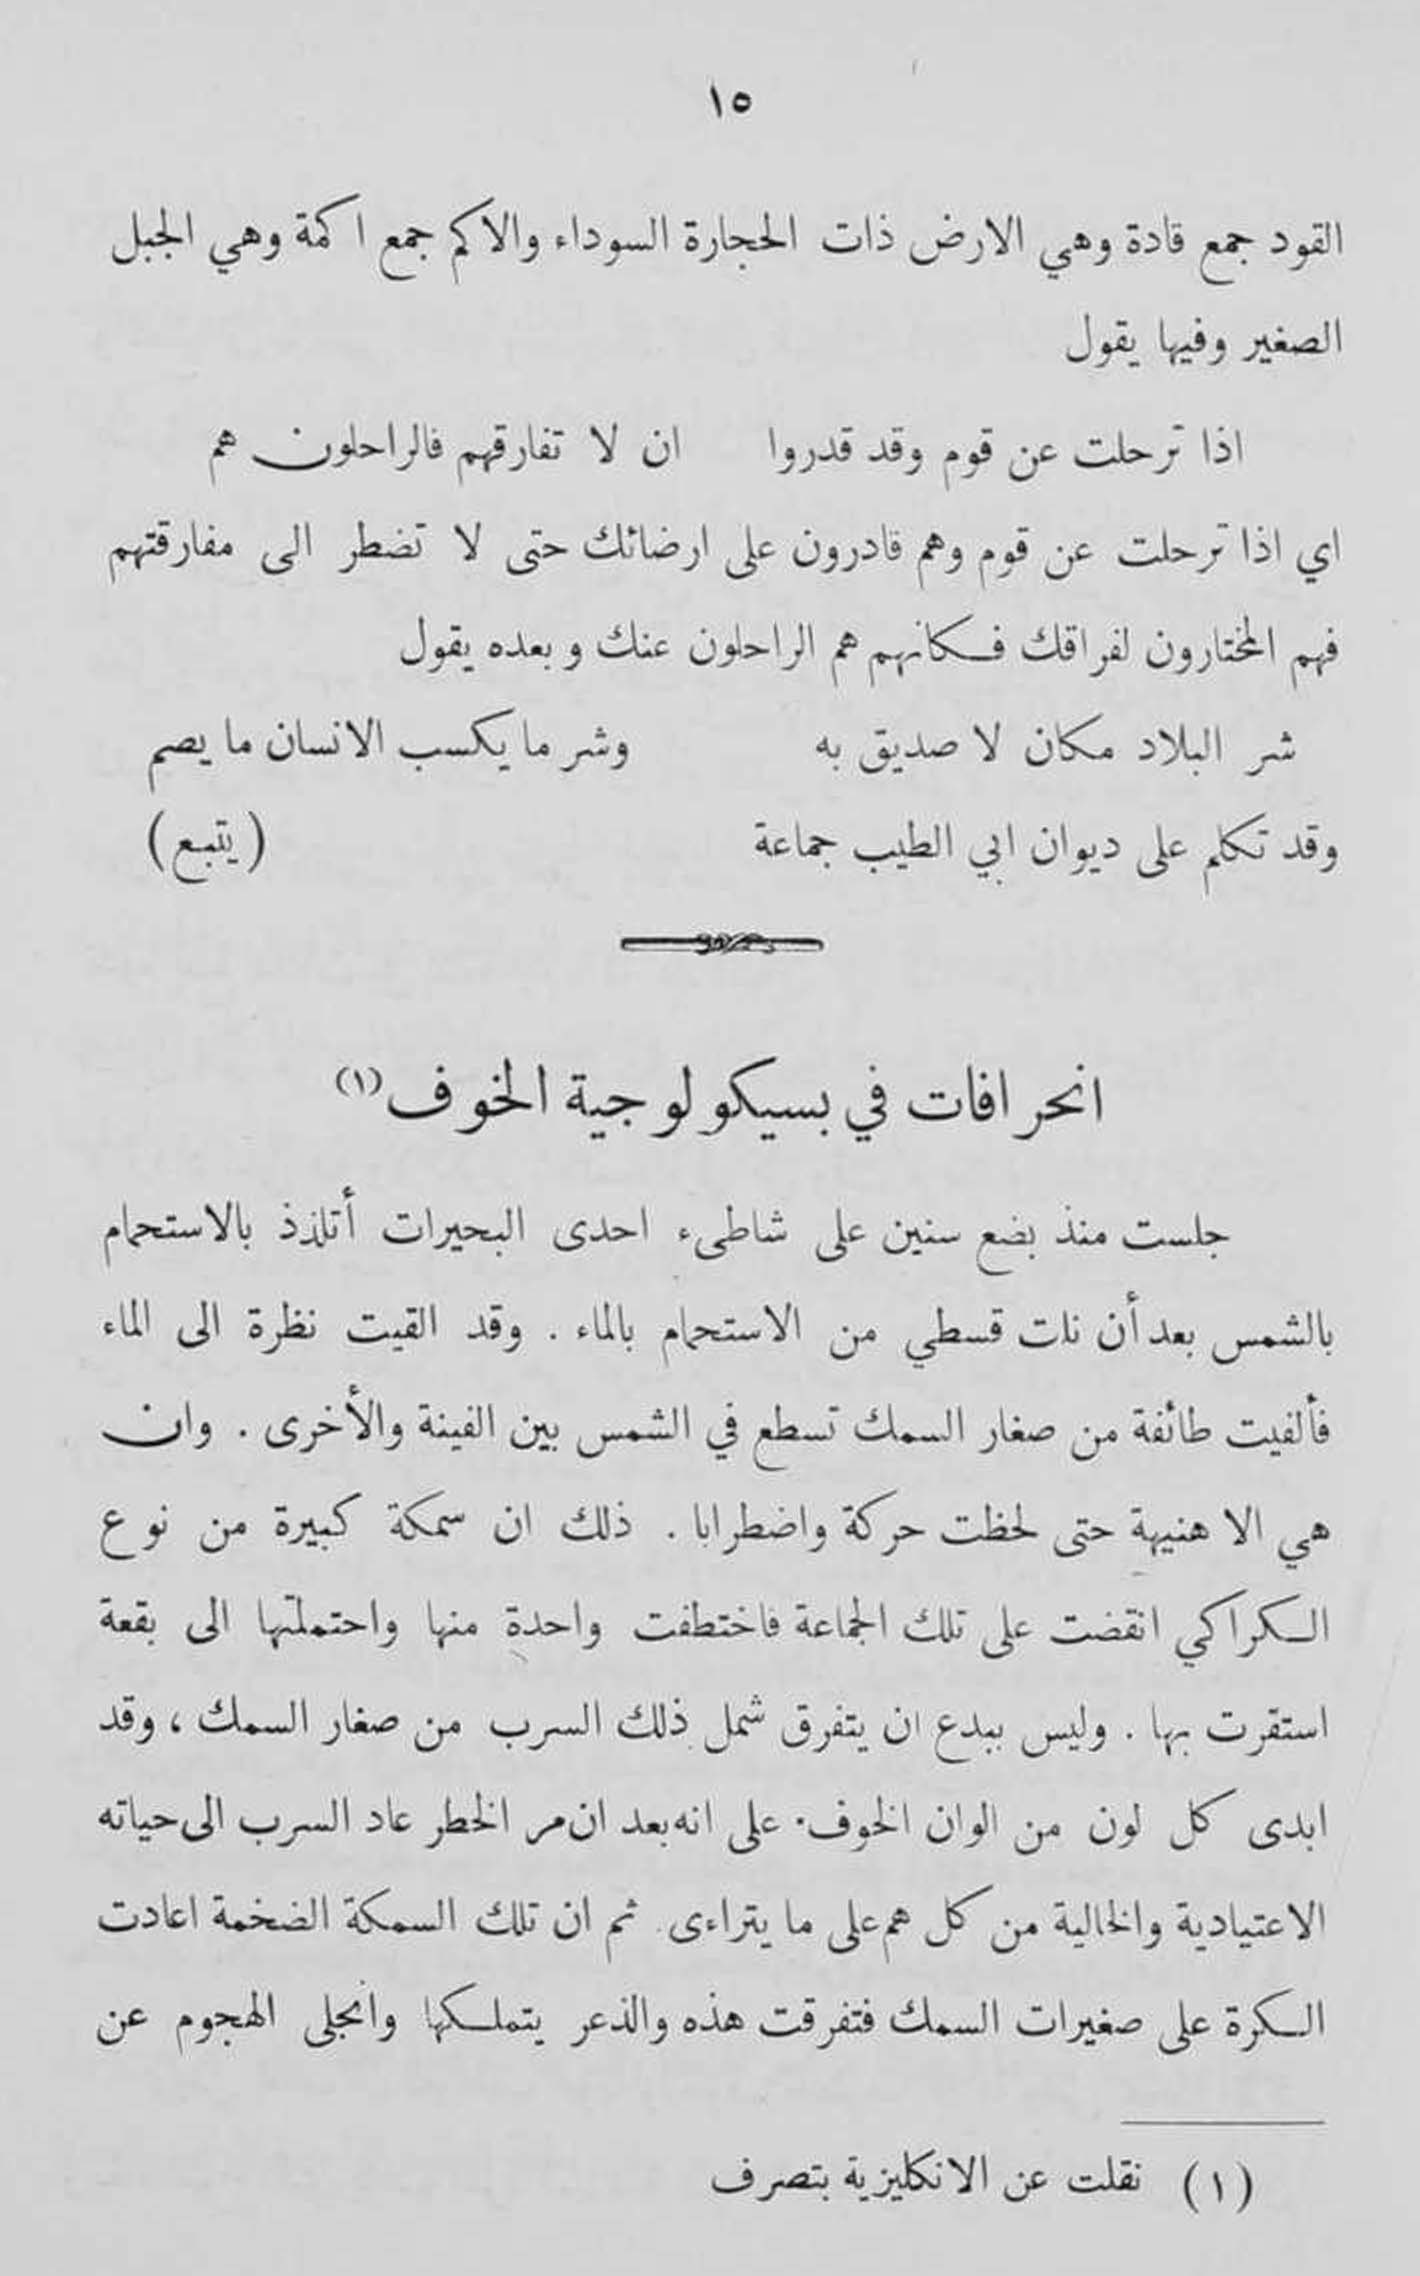 ١٥
القود جمع قادة وهي الارض ذات الحجارة السوداء والاكم جمع اكمة وهي الجبل
الصغير وفيها يقول
اذا ترحلت عن قوم وقد قدروا ان لا تفارقهم فالراحلون هم
اي اذا ترحلت عن قوم وهم قادرون على ارضائك حتى لا تضطر الى مفارقتهم
فهم المختارون لفراقك فكانهم هم الراحلون عنك وبعده يقول
شر البلاد مكان لا صديق به وشر ما يكسب الانسان ما يصم
وقد تكلم على ديوان ابي الطيب جماعة (يتبع)
انحرافات في بسيكولوجية الخوف (١)
جلست منذ بضع سنين على شاطىء احدى البحيرات أتلذذ بالاستحمام
بالشمس بعد أن نلت قسطي من الاستحمام بالماء . وقد القيت نظرة الى الماء
فألفيت طائفة من صغار السمك تسطع في الشمس بين الفينة والأخرى . وان
هي الا هنيهة حتى لحظت حركة واضطرابا . ذلك ان سمكة كبيرة من نوع
الكراكي انقضت على تلك الجماعة فاختطفت واحدة منها واحتملتها الى بقعة
استقرت بها . وليس ببدع ان يتفرق شمل ذلك السرب من صغار السمك ، وقد
ابدى كل لون من الوان الخوف . على انه بعد ان مر الخطر عاد السرب الى حياته
الاعتيادية والخالية من كل هم على ما يتراءى . ثم ان تلك السمكة الضخمة اعادت
الكرة على صغيرات السمك فتفرقت هذه والذعر يتملكها وانجلى الهجوم عن
(١) نقلت عن الانكليزية بتصرف